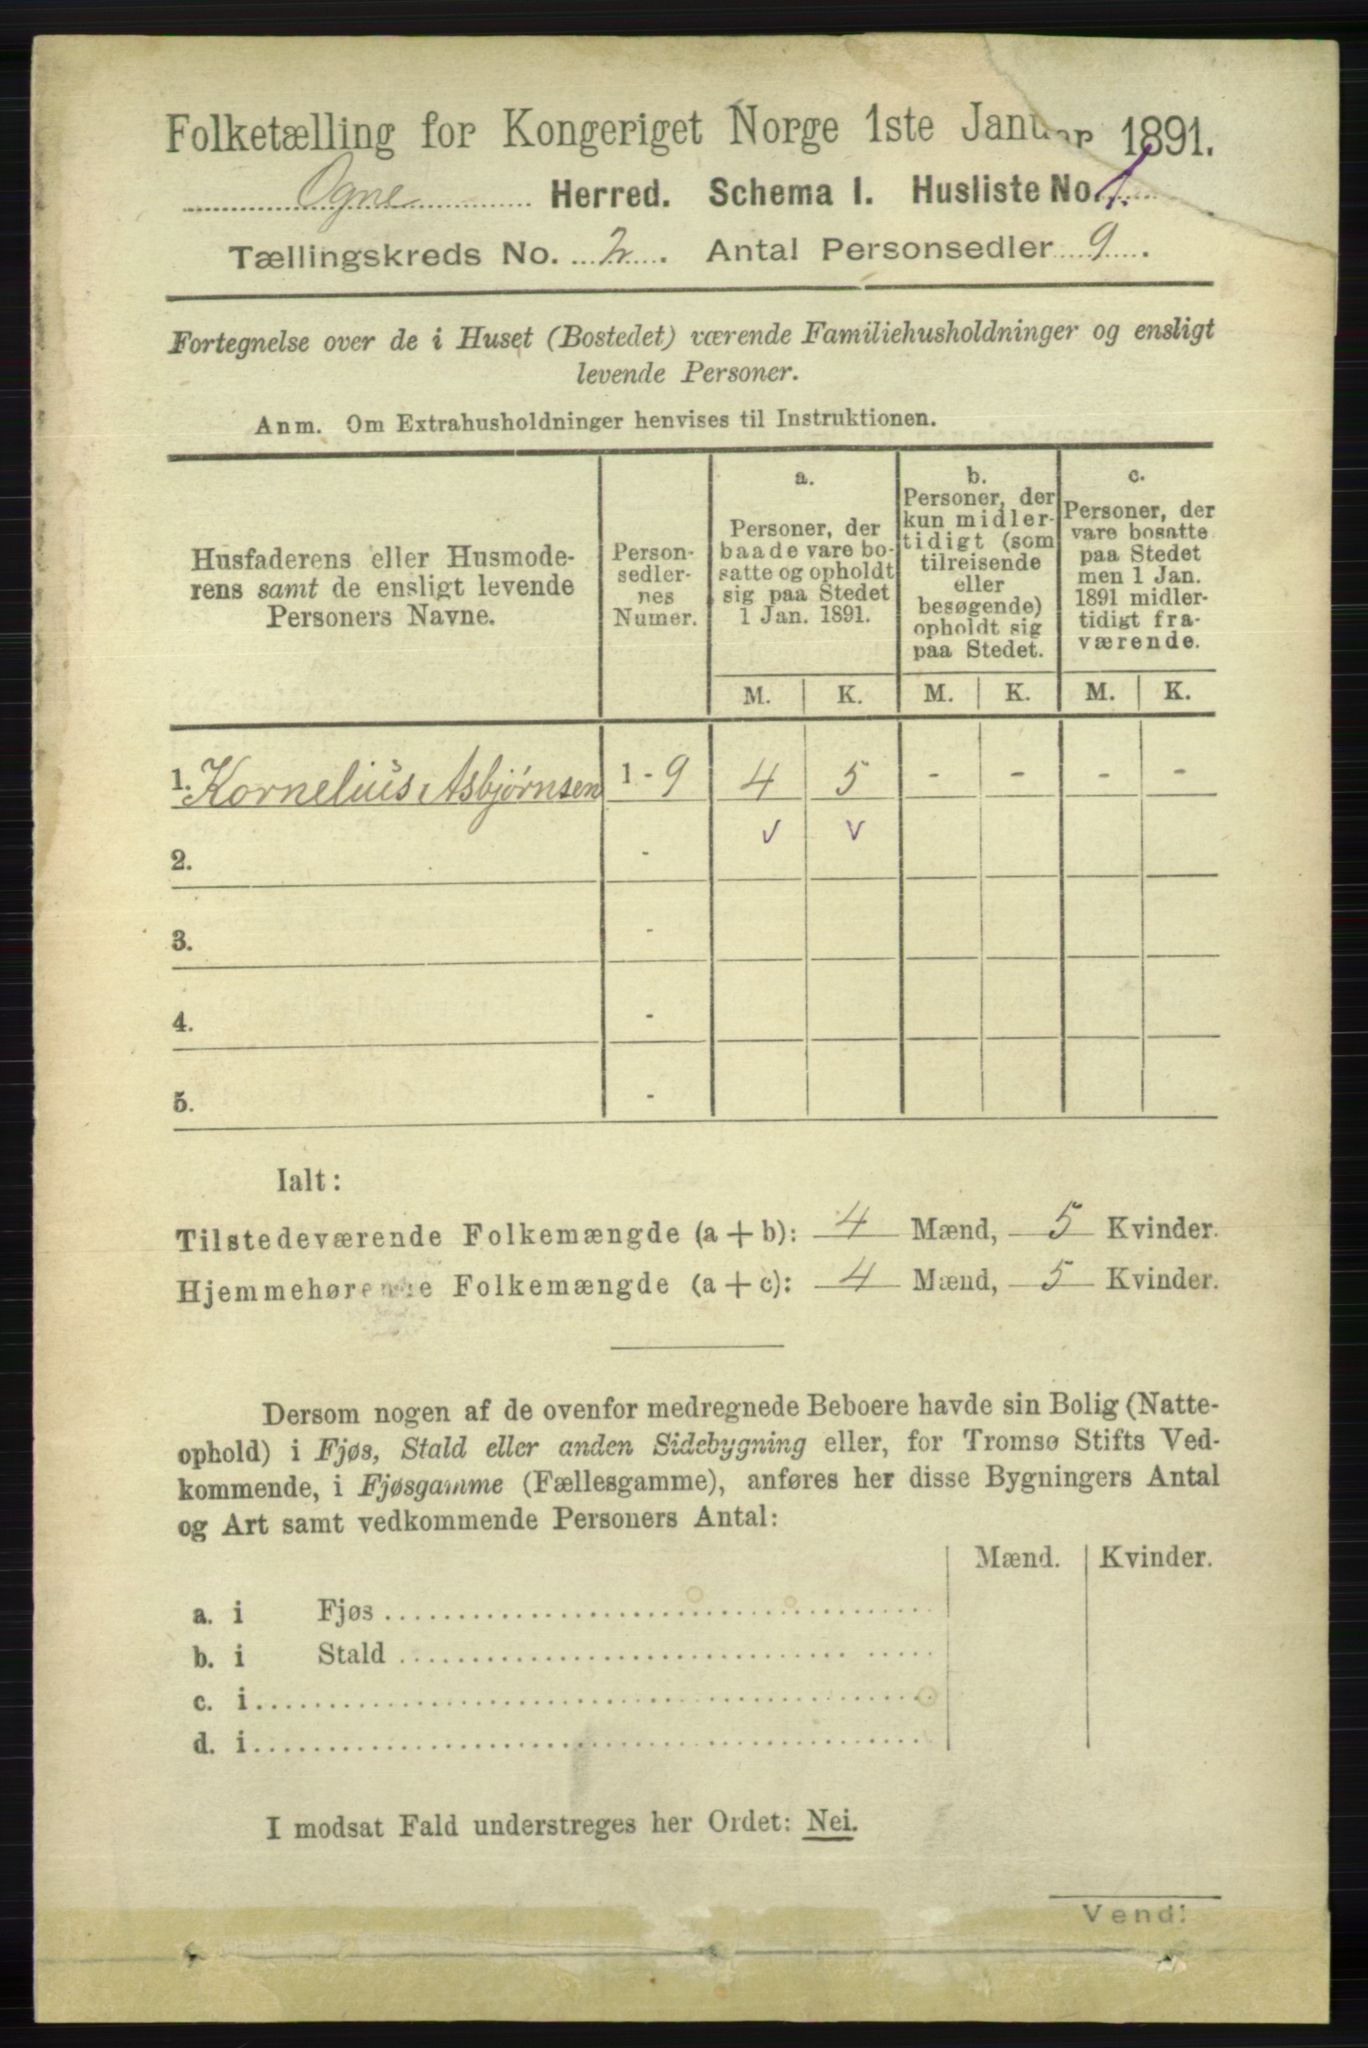 Folketælling for Kongeriget Norge 1ste Januar 1891.
Ogne Herred. Schema I. Husliste No. 1.
Tællingskreds No. 2. Antal Personsedler 9.
Fortegnelse over de i Huset (Bostedet) værende Familiehusholdninger og ensligt
levende Personer.
Anm. Om Extrahusholdninger henvises til Instruktionen.
Husfaderens eller Husmode-
rens samt de ensligt levende
Personers Navne.
Person-
sedler-
nes
Numer.
a.
Personer, der
baade vare bo-
satte og opholdt
sig paa Stedet
1 Jan. 1891.
b.
Personer, der
kun midler-
tidigt (som
tilreisende
eller
besøgende)
opholdt sig
paa Stedet.
c.
Personer, der
vare bosatte
paa Stedet
men 1 Jan.
1891 midler-
tidigt fra-
værende.
M. K. M. K. M. K.
1. Kornelius Asbjørnsen 1 - 9 4 5 - - - -
v v
2. -
3. -
4. -
5. -
Ialt:
Tilstedeværende Folkemængde (a + b): 4 Mænd, 5 Kvinder.
Hjemmehørende Folkemængde (a + c): 4 Mænd, 5 Kvinder.
Dersom nogen af de ovenfor medregnede Beboere havde sin Bolig (Natte-
ophold) i Fjøs, Stald eller anden Sidebygning eller, for Tromsø Stifts Ved-
kommende, i Fjøsgamme (Fællesgamme), anføres her disse Bygningers Antal
og Art samt vedkommende Personers Antal:
Mænd. Kvinder.
a. i Fjøs
b. i Stald
c. i
d. i
I modsat Fald understreges her Ordet: Nei.
Vend!